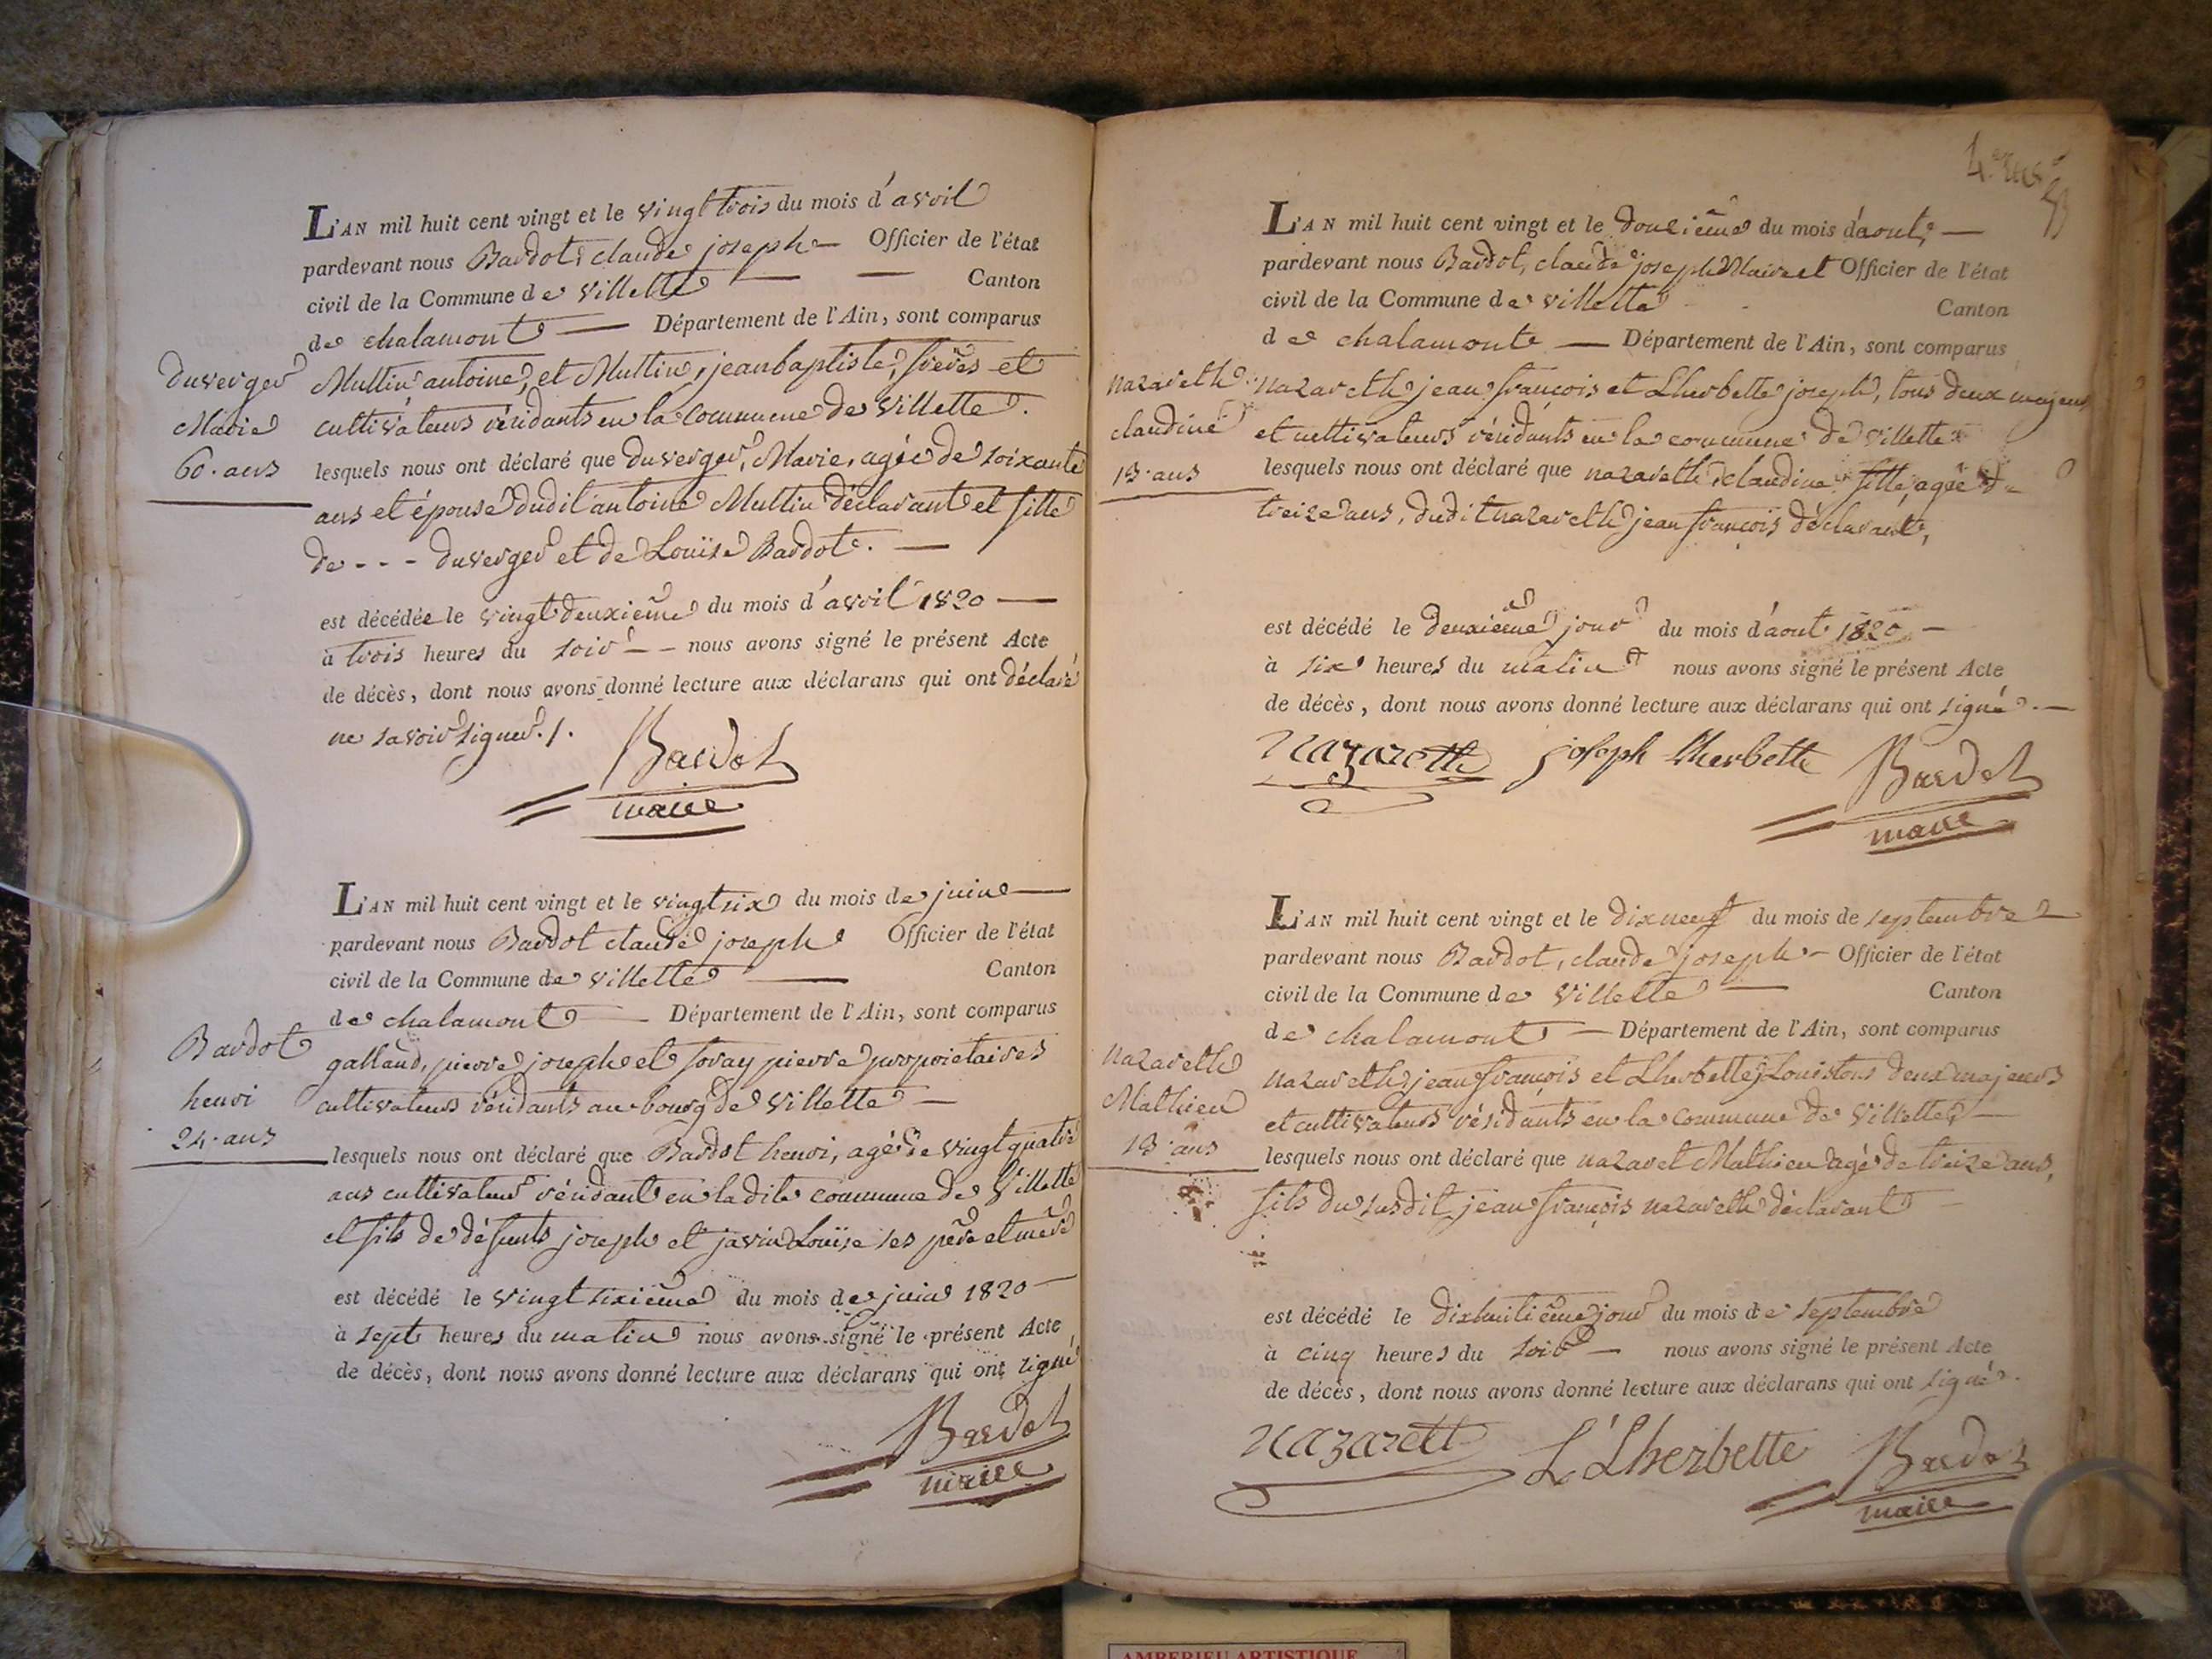 L'AN mil huit cent vingt et le vingt trois du mois d'avril
pardevant nous Bardot, claude joseph Officier de l'état
civil de la Commune de villette Canton
de chalamont Département de l'Ain, sont comparus
duverger
Marie
60. ans
Muttin antoine, et Muttin, jean baptiste, freres et
cultivateurs résidants en la commune de villette.
lesquels nous ont déclaré que duverger, Marie, agée de soixante
ans et épouse dudit antoine Muttin déclarant et fille
de - - - duverger et de Louïse Bardot.
est décédée le vingt deuxieme du mois d'avril 1820
à trois heures du soir nous avons signé le présent Acte
de décès, dont nous avons donné lecture aux déclarans qui ont déclaré
ne savoir signer./.
Bardot
maire
L'AN mil huit cent vingt et le vingt six du mois de juin
pardevant nous Bardot claude joseph Officier de l'état
civil de la Commune de villette Canton
de chalamont Département de l'Ain, sont comparus
Bardot
henri
24. ans
galland, pierre joseph et pierre propriétaires
cultivateurs résidants au bourg de villette
lesquels nous ont déclaré que Bardot henri, agé de vingt quatre
ans cultivateur résidant en la dite commune de Villette
et fils de défunts joseph et Louïse ses père et mère
est décédé le vingt sixieme du mois de juin 1820
à sept heures du matin nous avons signé le présent Acte
de décès, dont nous avons donné lecture aux déclarans qui ont signé
Bardot
maire
L'AN mil huit cent vingt et le douzieme du mois d'aout
pardevant nous Bardot, claude joseph Maire et Officier de l'état
civil de la Commune de villette Canton
de chalamont Département de l'Ain, sont comparus
nazareth
claudine
13. ans
nazareth jean françois et Lherbette joseph, tous deux majeurs
et cultivateurs résidants en la commune de villette
lesquels nous ont déclaré que nazareth claudine fille, agée de
treize ans, dudit nazareth jean françois déclarant,
est décédé le deuxieme jour du mois d'aout 1820
à six heures du matin nous avons signé le présent Acte
de décès, dont nous avons donné lecture aux déclarans qui ont signé.
Nazareth joseph Lherbette Bardot
maire
L'AN mil huit cent vingt et le dix neuf du mois de septembre
pardevant nous Bardot, claude joseph Officier de l'état
civil de la Commune de Villette Canton
de chalamont Département de l'Ain, sont comparus
nazareth
Mathieu
13. ans
nazareth jean françois et Lherbette Louis tous deux majeurs
et cultivateurs résidants en la commune de Villette,
lesquels nous ont déclaré que nazaret Mathieu agé de treize ans,
fils du susdit jean françois nazareth déclarant
est décédé le dixhuitieme jour du mois de septembre
à cinq heures du soir nous avons signé le présent Acte
de décès, dont nous avons donné lecture aux déclarans qui ont signé.
Nazarett L. Lherbette Bardot
maire
AMBERIEU ARTISTIQUE